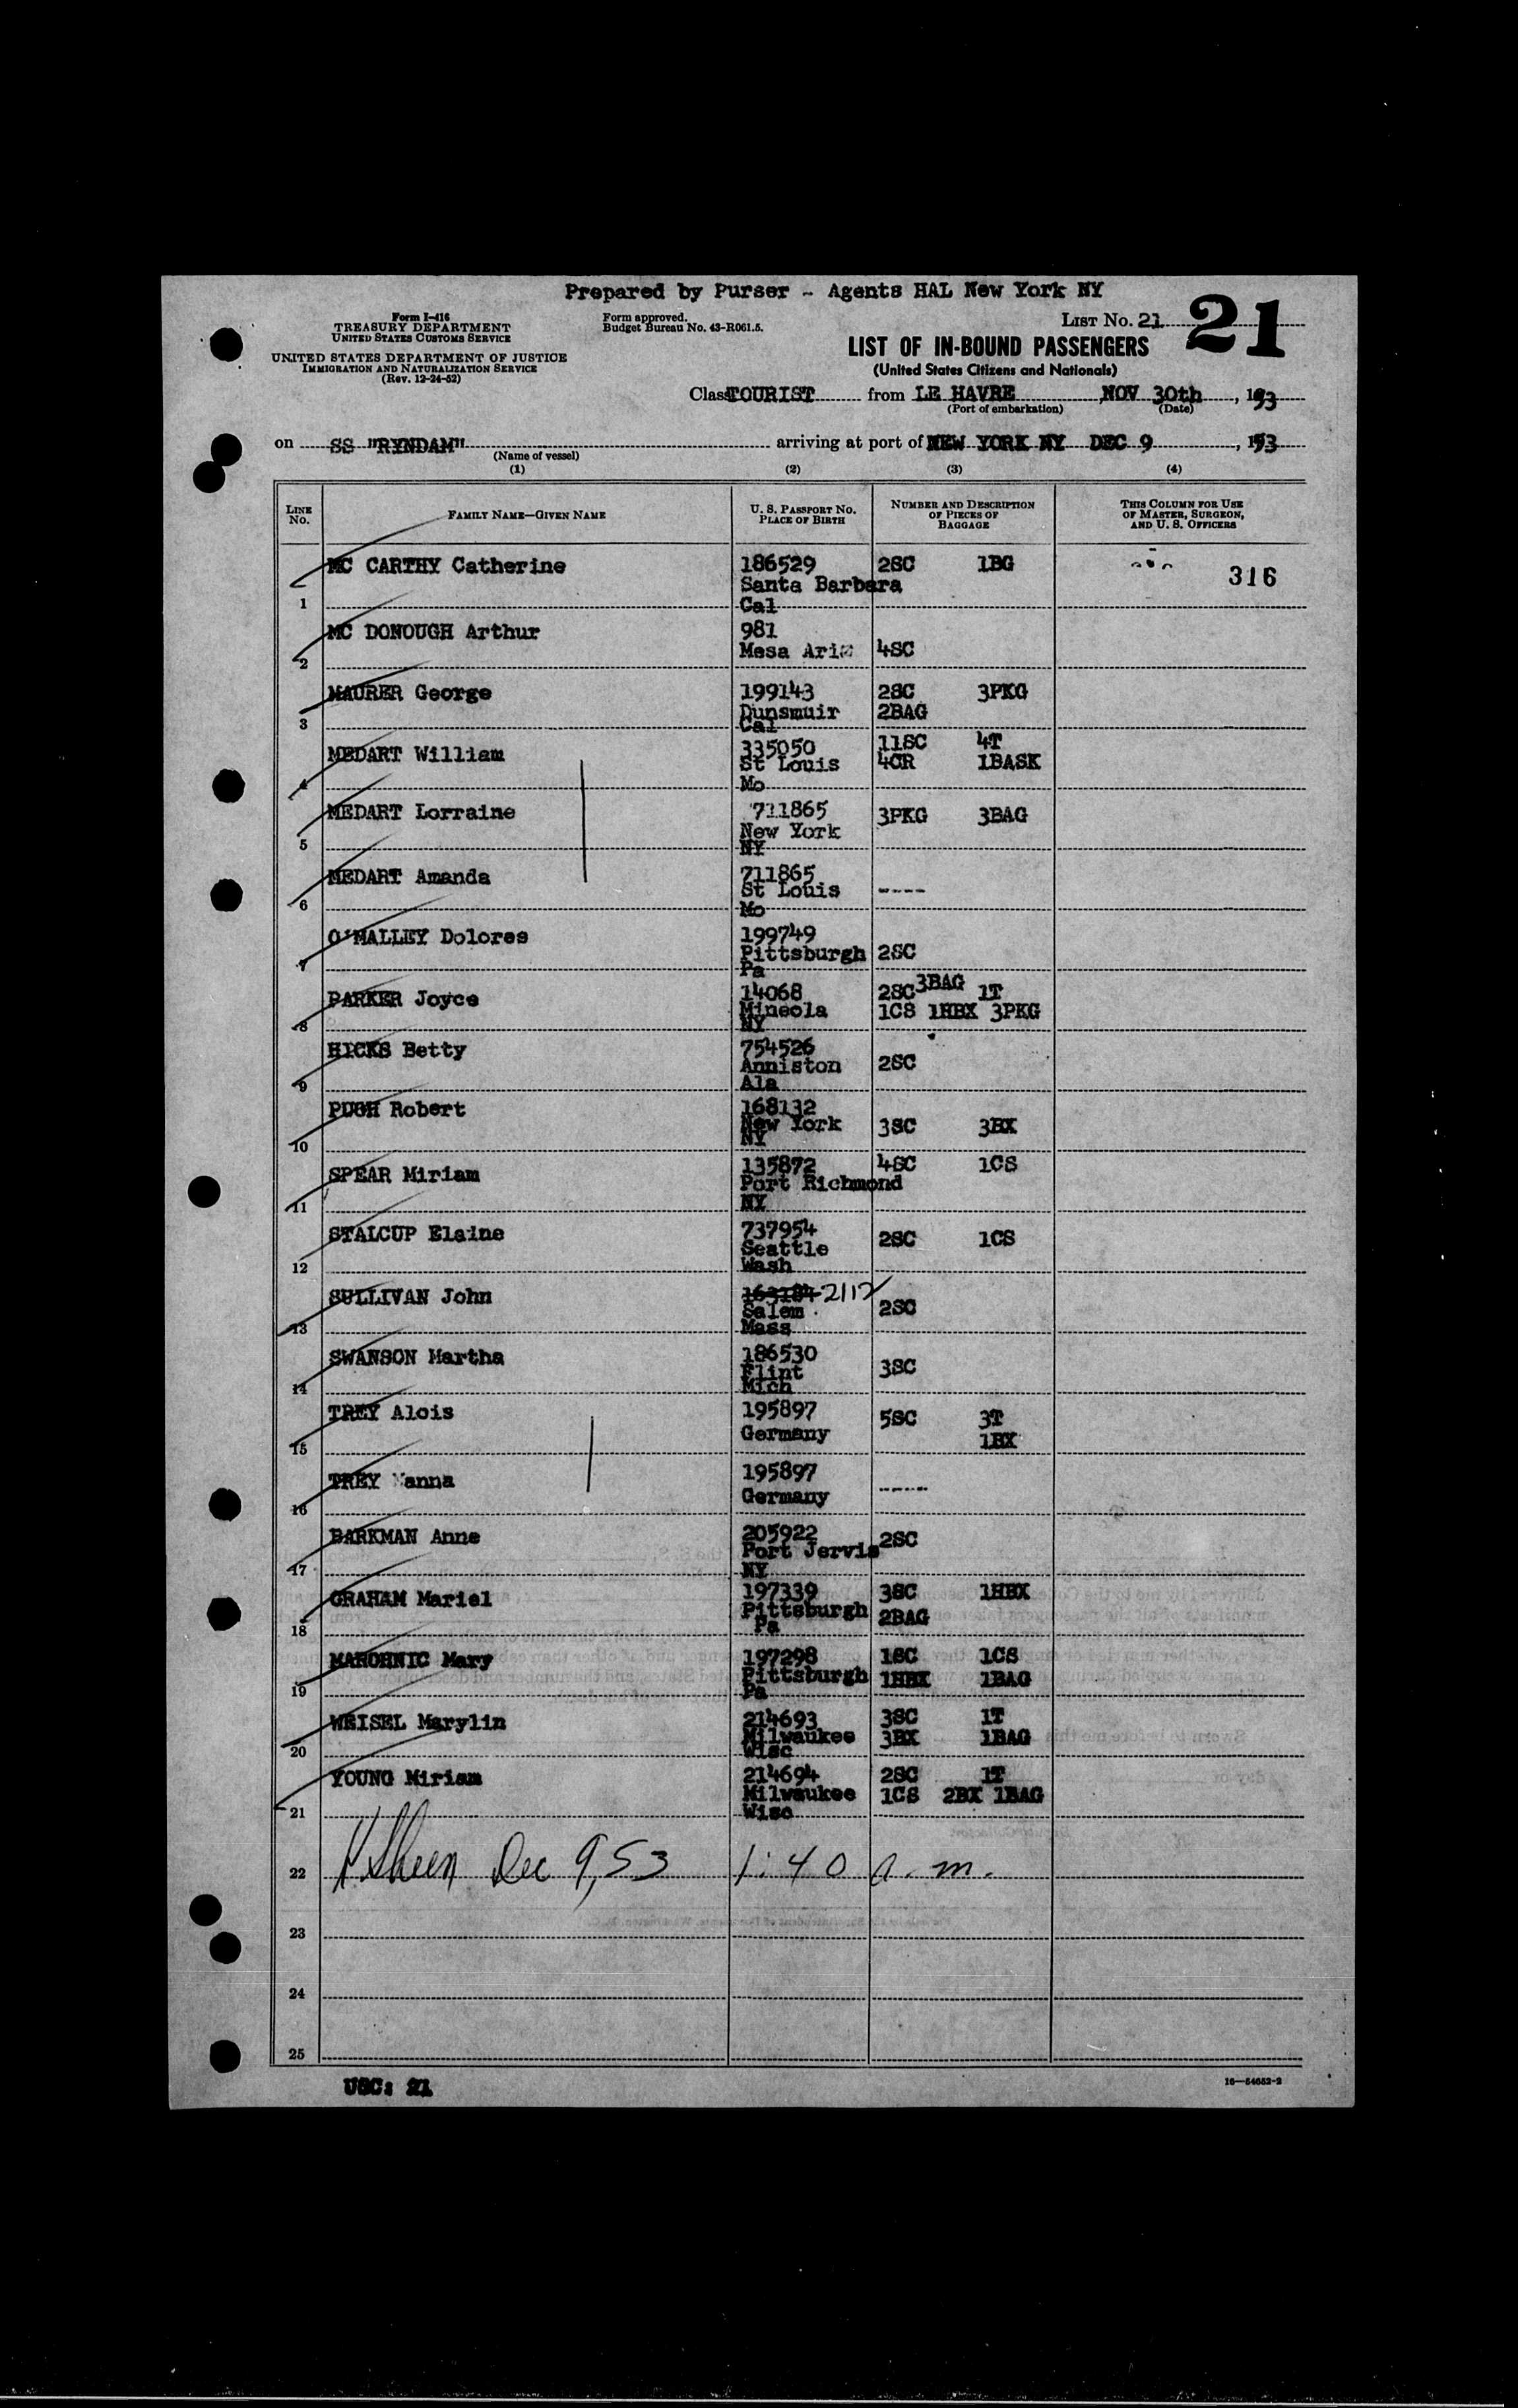 Prepared by Purser - Agents HAL New York NY
Form I-416
TREASURY DEPARTMENT
UNITED STATES CUSTOMS SERVICE
UNITED STATES DEPARTMENT OF JUSTICE
IMMIGRATION AND NATURALIZATION SERVICE
(Rev. 12-24-52)
Form approved.
Budget Bureau No. 43-R061.5.
LIST No. 21 21
LIST OF IN-BOUND PASSENGERS
(United States Citizens and Nationals)
Class TOURIST from LE HAVRE, NOV 30th, 1953
(Port of embarkation) (Date)
on SS "RYNDAM" arriving at port of NEW YORK NY DEC 9, 1953
(Name of vessel)
(1) (2) (3) (4)
LINE No. FAMILY NAME—GIVEN NAME U. S. PASSPORT NO. PLACE OF BIRTH NUMBER AND DESCRIPTION OF PIECES OF BAGGAGE THIS COLUMN FOR USE OF MASTER, SURGEON, AND U. S. OFFICERS
1 MC CARTHY Catherine 186529 Santa Barbara Cal 2SC 1BG 316
2 MC DONOUGH Arthur 981 Mesa Ariz 4SC
3 MAURER George 199143 Dunsmuir Cal 2SC 3PKG 2BAG
4 MEDART William 335050 St Louis Mo 11SC 4T 4CR 1BASK
5 MEDART Lorraine 711865 New York NY 3PKG 3BAG
6 MEDART Amanda 711865 St Louis Mo ----
7 O'MALLEY Dolores 199749 Pittsburgh Pa 2SC
8 PARKER Joyce 14068 Mineola NY 2SC 3BAG 1T 1CS 1HBX 3PKG
9 HICKS Betty 754526 Anniston Ala 2SC
10 PUGH Robert 168132 New York NY 3SC 3BX
11 SPEAR Miriam 135872 Port Richmond NY 4SC 1CS
12 STALCUP Elaine 737954 Seattle Wash 2SC 1CS
13 SULLIVAN John 163184 2112 Salem Mass 2SC
14 SWANSON Martha 186530 Flint Mich 3SC
15 TREY Alois 195897 Germany 5SC 3T 1BX
16 TREY anna 195897 Germany -----
17 BARKMAN Anne 205922 Port Jervis NY 2SC
18 GRAHAM Mariel 197339 Pittsburgh Pa 3SC 1HBX 2BAG
19 MAROHNIC Mary 197298 Pittsburgh Pa 1SC 1CS 1HBX 1BAG
20 WEISEL Marylin 214693 Milwaukee Wisc 3SC 1T 3BX 1BAG
21 YOUNG Miriam 214694 Milwaukee Wisc 2SC 1T 1CS 2BX 1BAG
22 Dec 9, 53 1:40 a.m.
23
24
25
USC: 21
16—54652-2